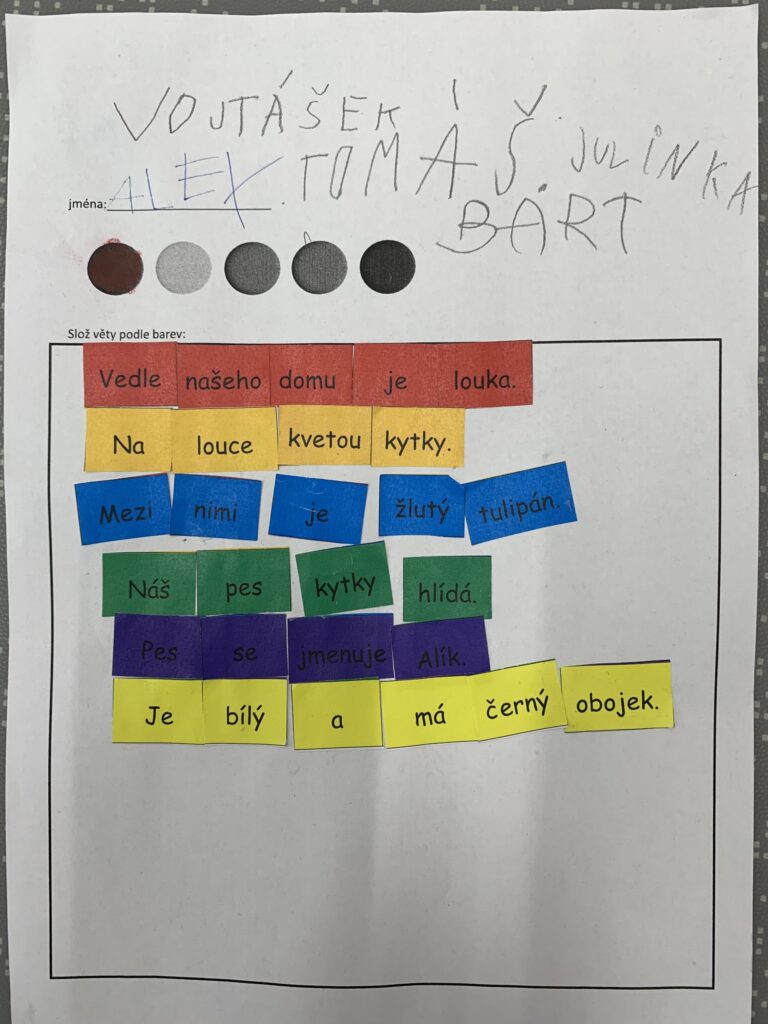 VOJTÁŠEK
jména: ALEX. TOMÁŠ. JULINKA
BART
Slož věty podle barev:
Vedle našeho domu je louka.
Na louce kvetou kytky.
Mezi nimi je žlutý tulipán.
Náš pes kytky hlídá.
Pes se jmenuje Alík.
Je bílý a má černý obojek.